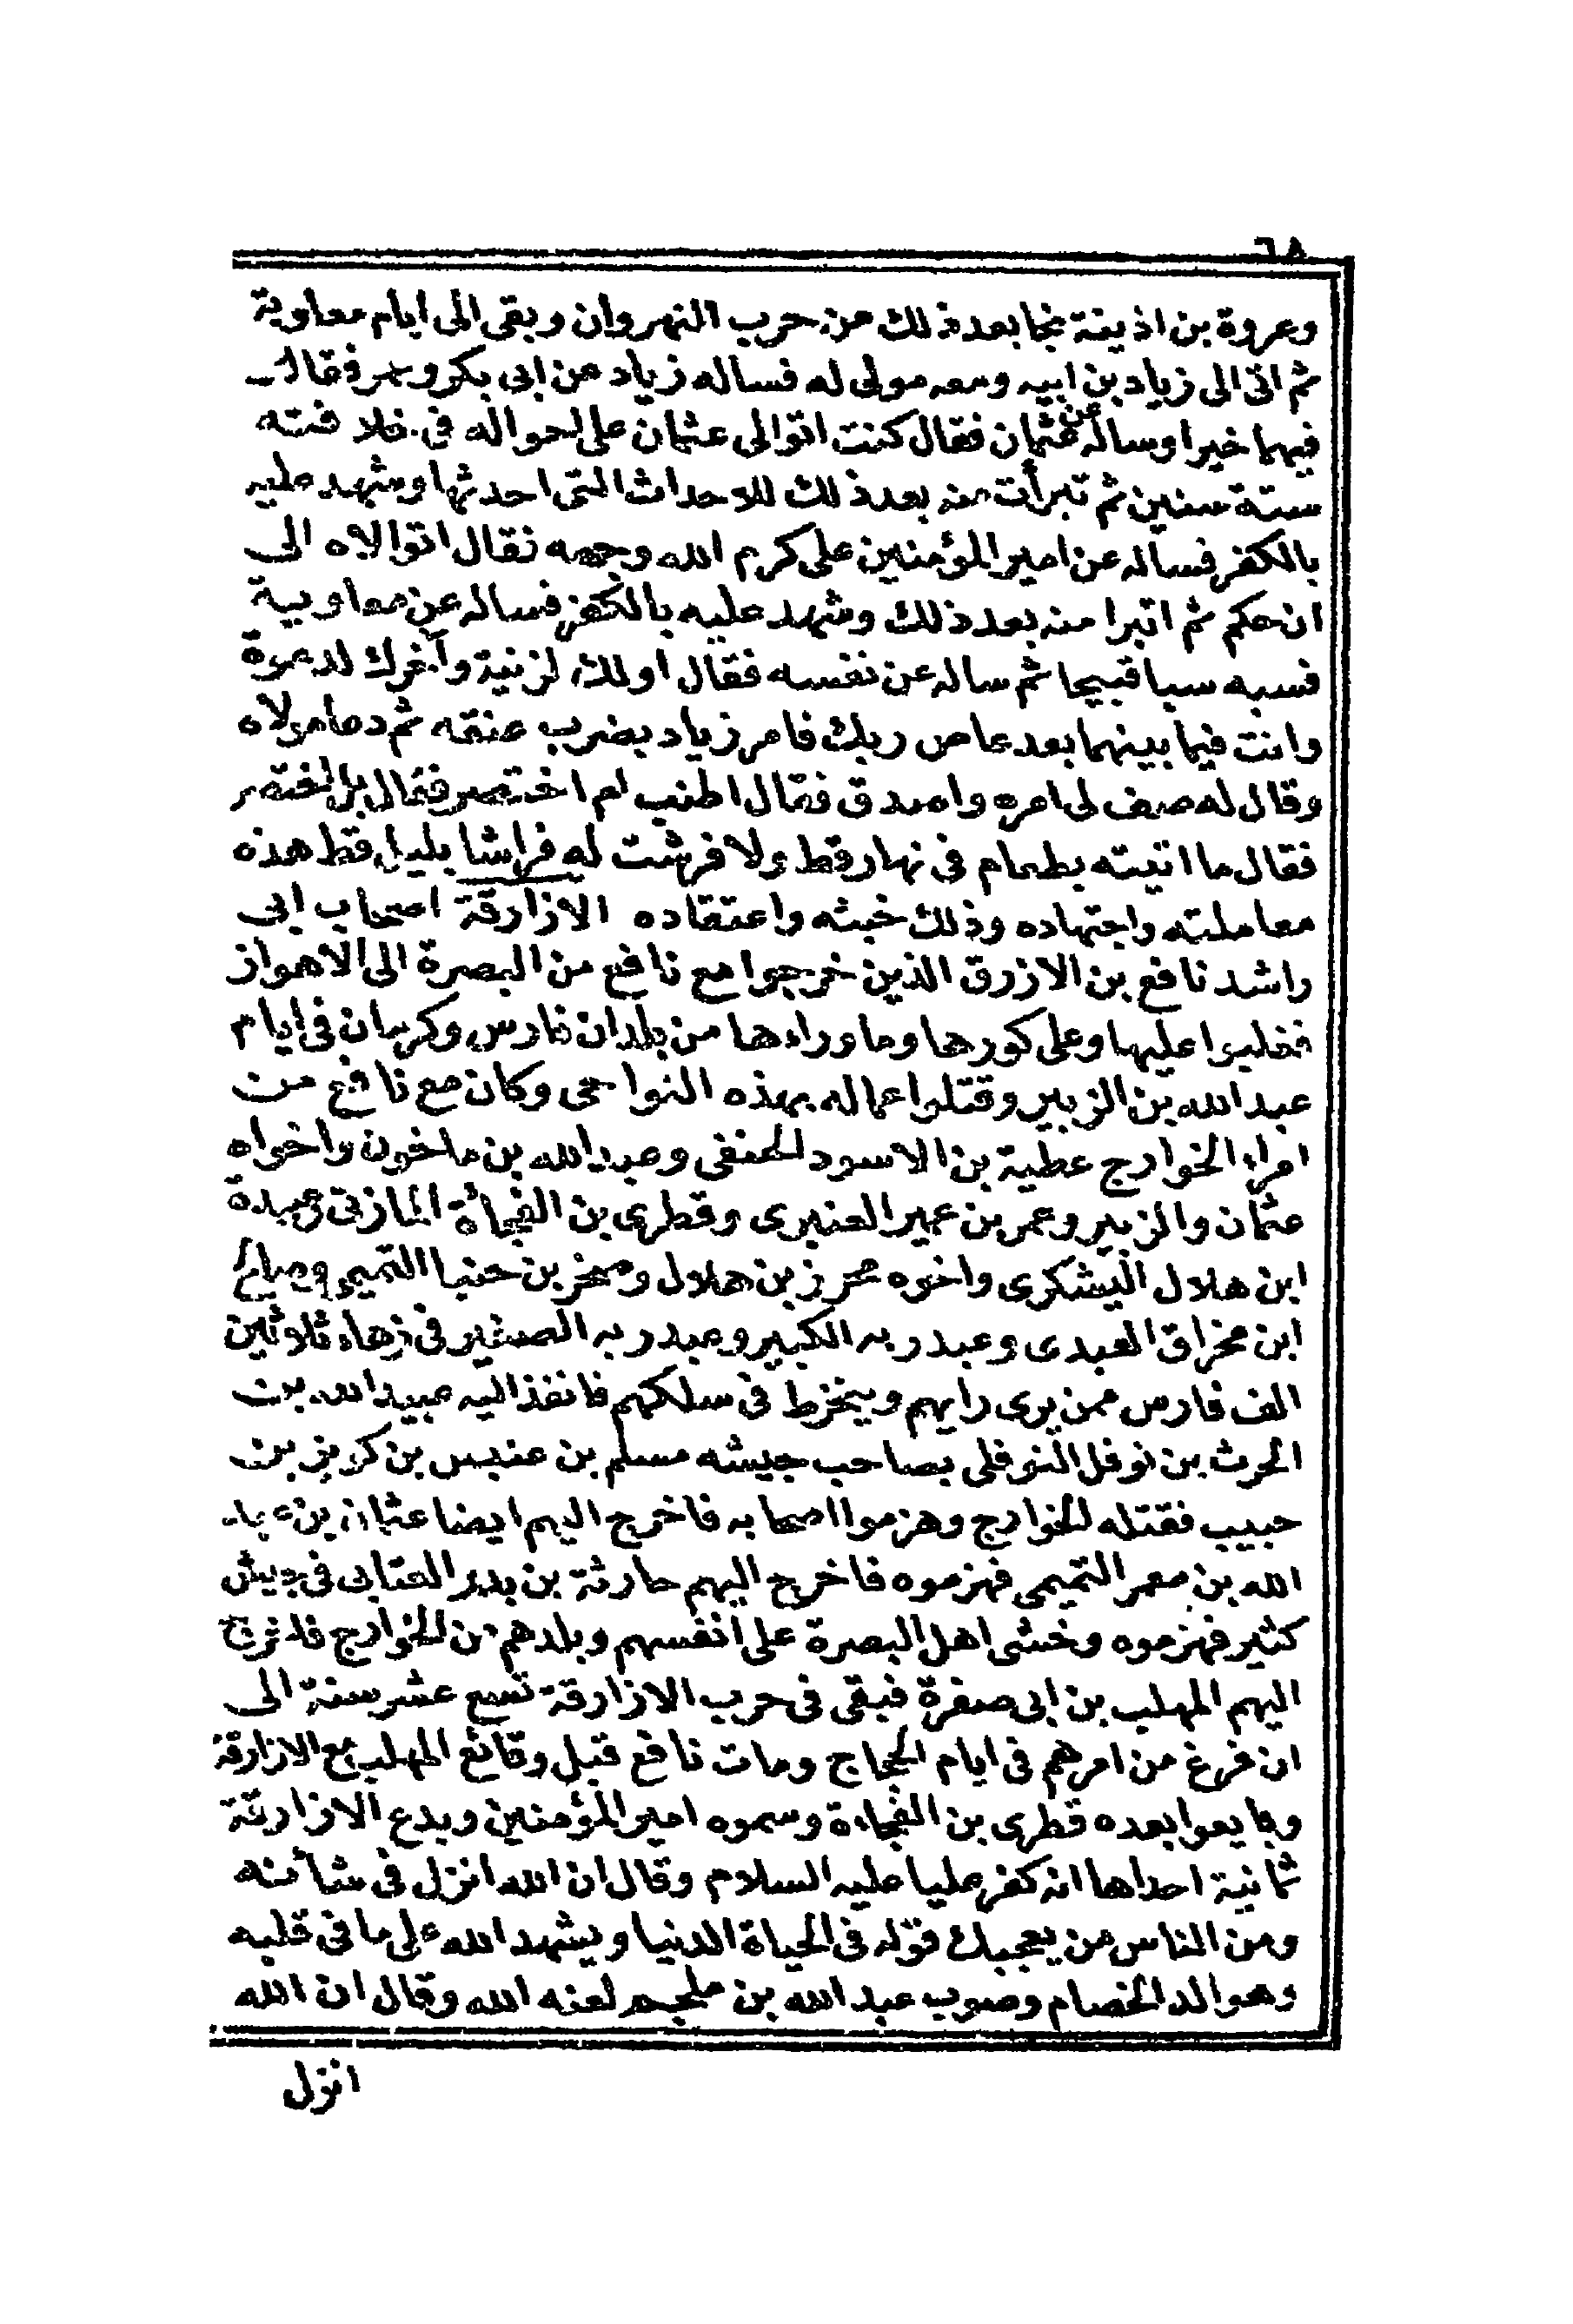 ٦٨
وعروة بن اذينة نجا بعد ذلك من حرب النهروان وبقى الى ايام معاوية
ثم اتى الى زياد بن ابيه ومعه مولى له فساله زياد عن ابى بكر وعمر فقال
فيهما خيرا وساله عن عثمان فقال كنت اتوالى عثمان على احواله فى خلافته
ستة سنين ثم تبرأت منه بعد ذلك للاحداث التى احدثها وشهد عليه
بالكفر فساله عن امير المؤمنين على كرم الله وجهه فقال اتوالاه الى
ان حكم ثم اتبرا منه بعد ذلك وشهد عليه بالكفر فساله عن معاوية
فسبه سبا قبيحا ثم ساله عن نفسه فقال اولك لزنية وآخرك لدعوة
وانت فيما بينهما بعد عاص ربك فامر زياد بضرب عنقه ثم دعا مولاه
وقال له صف لى امره واصدق فقال اطنب ام اختصر فقال بل اختصر
فقال ما اتيته بطعام فى نهار قط ولا فرشت له فراشا بليل قط هذه
معاملته واجتهاده وذلك خبثه واعتقاده الازارقة اصحاب ابى
راشد نافع بن الازرق الذين خرجوا مع نافع من البصرة الى الاهواز
فغلبوا عليها وعلى كورها وما وراءها من بلدان فارس وكرمان فى ايام
عبد الله بن الزبير وقتلوا عماله بهذه النواحى وكان مع نافع من
امراء الخوارج عطية بن الاسود الحنفى وعبد الله بن ماخون واخواه
عثمان والزبير وعمر بن عمير العنبرى وقطرى بن الفجاة المازنى وعبيدة
ابن هلال اليشكرى واخوه محرز بن هلال وصخر بن حنبا التميمى وصالح
ابن مخراق العبدى وعبد ربه الكبير وعبد ربه الصغير فى زهاء ثلاثين
الف فارس ممن يرى رايهم وينخرط فى سلكهم فانفذ اليه عبيد الله بن
الحرث بن نوفل النوفلى بصاحب جيشه مسلم بن عنبس بن كريز بن
حبيب فقتله الخوارج وهزموا اصحابه فاخرج اليهم ايضا عثمان بن عبد
الله بن معمر التميمى فهزموه فاخرج اليهم حارثة بن بدر العتابى فى جيش
كثير فهزموه وخشى اهل البصرة على انفسهم وبلدهم من الخوارج فاخرج
اليهم المهلب بن ابى صفرة فبقى فى حرب الازارقة تسع عشر سنة الى
ان فرغ من امرهم فى ايام الحجاج ومات نافع قبل وقائع المهلب مع الازارقة
وبايعوا بعده قطرى بن الفجاءة وسموه امير المؤمنين وبدع الازارقة
ثمانية احداها انه كفر عليا عليه السلام وقال ان الله انزل فى شأنه
ومن الناس من يعجبك قوله فى الحياة الدنيا ويشهد الله على ما فى قلبه
وهو الد الخصام وصوب عبد الله بن ملجم لعنه الله وقال ان الله
انزل